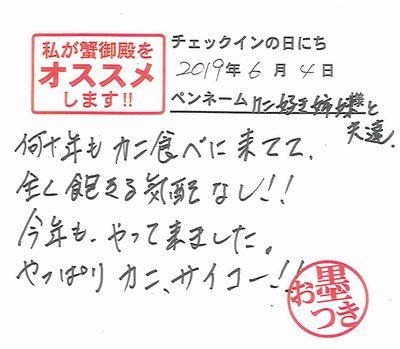 私が蟹御殿を
オススメ
します!!
チェックインの日にち
2019年 6月 4日
ペンネーム カニ好き姉妹様と
夫達.
何十年も カニ食べに来てて、
全く飽きる気配なし!!
今年も、やって来ました。
やっぱり カニ、サイコー!!
お墨つき